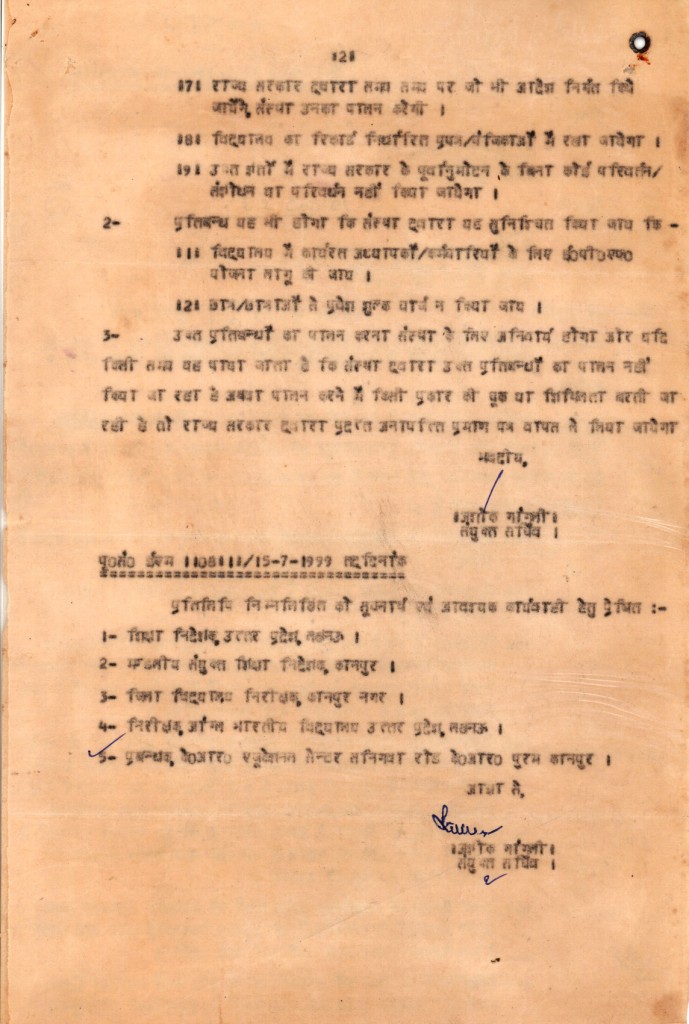 ॥2॥
॥7॥ राज्य सरकार द्वारा समय समय पर जो भी आदेश निर्गत किये
जायेंगे, संस्था उनका पालन करेगी ।
॥8॥ विद्यालय का रिकार्ड निर्धारित प्रपत्र/पंजिकाओं में रखा जायेगा ।
॥9॥ उक्त शर्तों में राज्य सरकार के पूर्वानुमोदन के बिना कोई परिवर्तन/
संशोधन या परिवर्धन नहीं किया जायेगा ।
2- प्रतिबन्ध यह भी होगा कि संस्था द्वारा यह सुनिश्चित किया जाय कि -
॥1॥ विद्यालय में कार्यरत अध्यापकों/कर्मचारियों के लिए ई0पी0एफ0
योजना लागू की जाय ।
॥2॥ छात्र/छात्राओं से प्रवेश शुल्क चार्ज न किया जाय ।
3- उक्त प्रतिबन्धों का पालन करना संस्था के लिए अनिवार्य होगा और यदि
किसी समय यह पाया जाता है कि संस्था द्वारा उक्त प्रतिबन्धों का पालन नहीं
किया जा रहा है अथवा पालन करने में किसी प्रकार की चूक या शिथिलता बरती जा
रही है तो राज्य सरकार द्वारा प्रदत्त अनापत्ति प्रमाण पत्र वापस ले लिया जायेगा
भवदीय,
॥अशोक गांगुली॥
संयुक्त सचिव ।
पृ0सं0 ॥1॥/15-7-1999 तद्दिनांक
प्रतिलिपि निम्नलिखित को सूचनार्थ एवं आवश्यक कार्यवाही हेतु प्रेषित :-
1- शिक्षा निदेशक, उत्तर प्रदेश, लखनऊ ।
2- मण्डलीय संयुक्त शिक्षा निदेशक, कानपुर ।
3- जिला विद्यालय निरीक्षक, कानपुर नगर ।
4- निरीक्षक, आंग्ल भारतीय विद्यालय उत्तर प्रदेश, लखनऊ ।
5- प्रबन्धक, के0आर0 एजूकेशनल सेन्टर सनिगवा रोड के0आर0 पुरम कानपुर ।
आज्ञा से,
॥अशोक गांगुली॥
संयुक्त सचिव ।